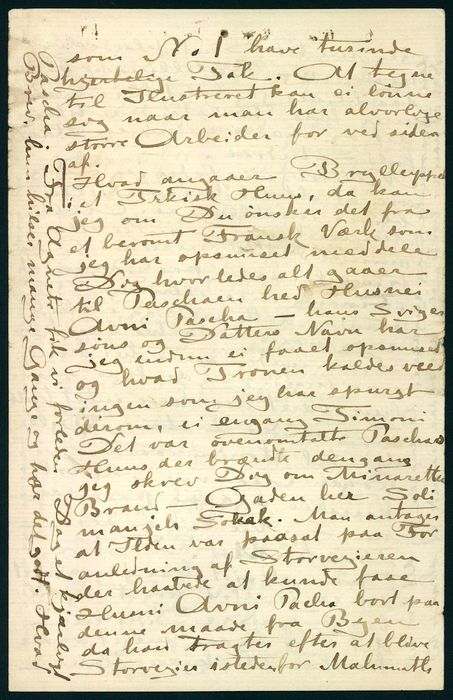 som No 1 have tusinde
hjertelige Tak.. At tegne
til Ilustreret kan ei lønne
sig naar man har alvorlige
større Arbeider for ved siden
af.
Hvad angaaer
i et Tyrkisk Huus, da kan
jeg om Du ønsker det fra
et berømt Fransk Værk som
jeg har opsnuset meddele
Dig hvorledes alt gaaer
til Paschaen hed Husnei
Avni Pascha – hans Sviger
søns og Datters Navn har
jeg endnu ei faaet opsnuset
og hvad Fronen kaldes veed
ingen som jeg har spurgt
derom, ei engang Simoni
Det var ovenomtalte Paschas
Huus der brændte dengang
jeg skrev Dig om Minarettens
Brand – Gaden her Soli
mangels Sokak. Man antager
at Ilden var paasat paa For
anledning af Storvezieren
der haabede at kunde faae
Husni Avni Pacha bort paa
denne maade fra Byen
da han tragter efter at blive
Storvezier istedenfor Mahmuth
Pascha. Fra Agnete fik vi forleden Dag et kjærligt
Brev, hun hilser mange Gange og har det godt. Hvad